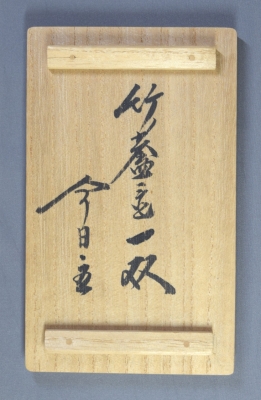 竹蓋置一双
今日主